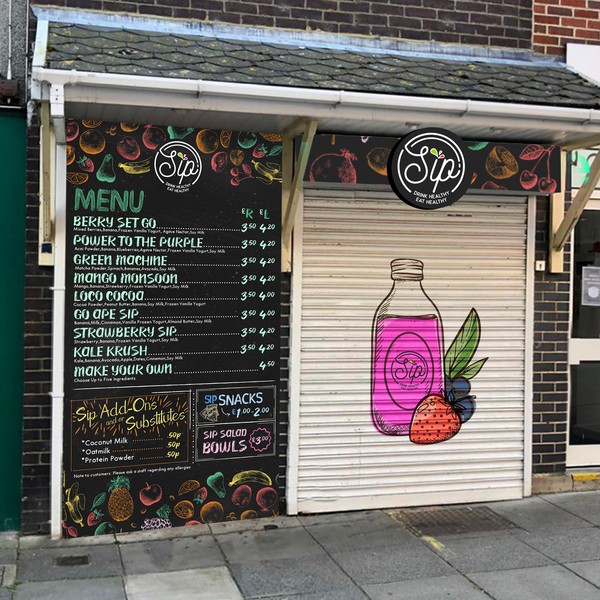 Sip
DRINK HEALTHY
EAT HEALTHY
MENU
£R £L
BERRY SET GO 3.50 4.20
Mixed Berries,Banana,Frozen Vanilla Yogurt, Agave Nectar,Soy Milk
POWER TO THE PURPLE 3.50 4.20
Acai Powder,Banana,Blueberries,Agave Nectar,Frozen Vanilla Yogurt,Soy Milk
GREEN MACHINE 3.50 4.20
Matcha Powder,Spinach,Bananas,Avocado,Soy Milk
MANGO MONSOON 3.50 4.20
Mango,Banana,Strawberry,Frozen Vanilla Yogurt,Soy Milk
LOCO COCOA 3.50 4.00
Cocoa Powder,Peanut Butter,Banana,Soy Milk,Frozen Vanilla Yogurt
GO APE SIP 3.50 4.00
Banana,Milk,Cinnamon,Vanilla Frozen Yogurt,Almond Butter,Soy Milk
STRAWBERRY SIP 3.50 4.20
Strawberry,Banana,Frozen Vanilla Yogurt,Soy Milk
KALE KRUSH 3.50 4.20
Kale,Banana,Avocado,Apple,Dates,Cinnamon,Soy Milk
MAKE YOUR OWN 4.50
Choose Up to Five Ingredients
Sip Add-Ons
and/or
Substitutes
*Coconut Milk 50p
*Oatmilk 50p
*Protein Powder 50p
SIP SNACKS
£1.00-2.00
SIP SALAD
BOWLS £3.00
Note to customers: Please ask a staff regarding any allergies
Sip
DRINK HEALTHY
EAT HEALTHY
Sip